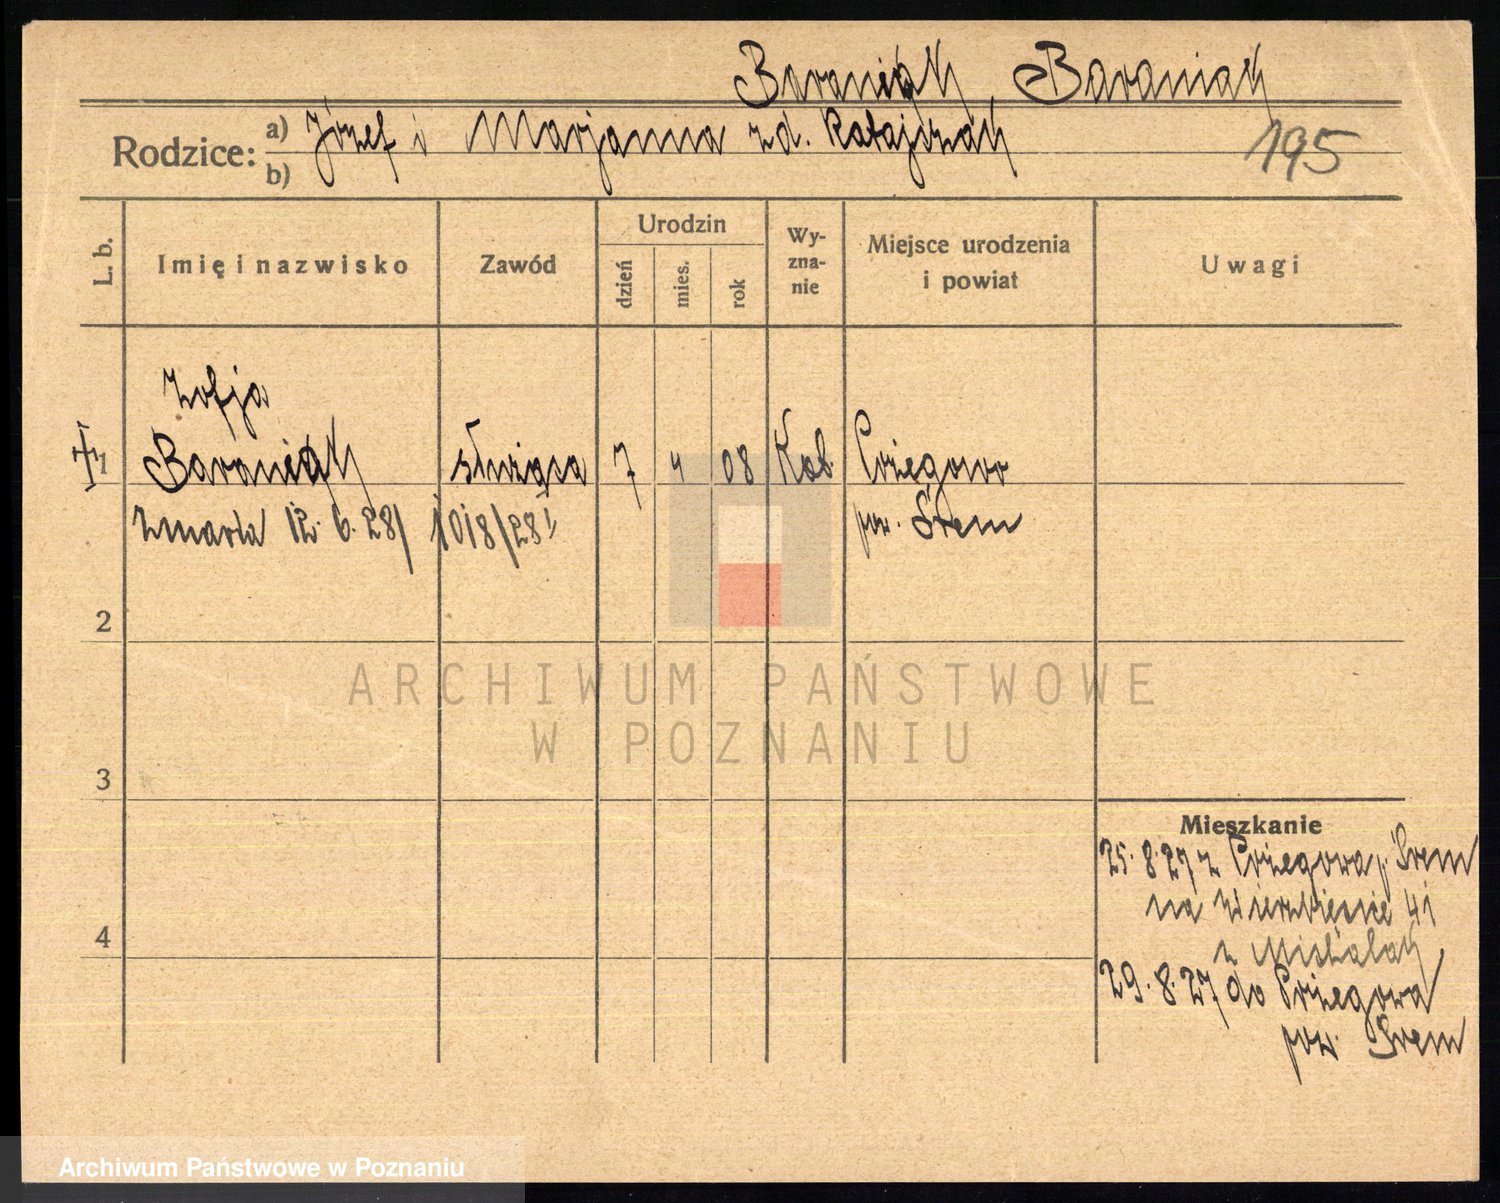 Baraniak Baraniak
Rodzice: a) Józef i Marjanna zd. Ratajczak
b)
195
L. b.
Imię i nazwisko
Zawód
Urodzin
dzień
mies.
rok
Wy-
zna-
nie
Miejsce urodzenia
i powiat
Uwagi
Zofja
1 Baraniak służąca 7 4 08 Kat. Psżegowo
zmarła 12. 6. 28/ 1018/28 pow. Śrem
2
3
4
Mieszkanie
25. 8. 27 z Psżegowa p. Śrem
na Wierzbięcice 41
z Michalak
29. 8. 27 do Psżegowa
pow. Śrem
ARCHIWUM PAŃSTWOWE
W POZNANIU
Archiwum Państwowe w Poznaniu